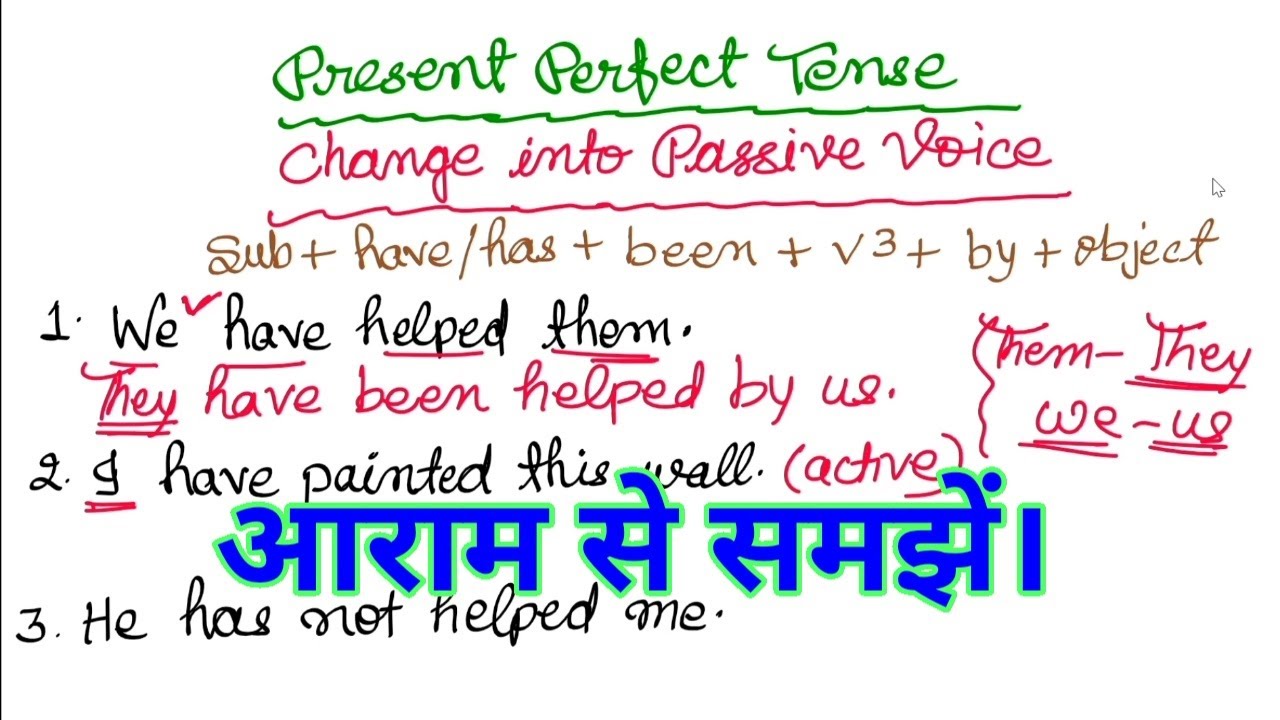 Present Perfect Tense
Change into Passive Voice
Sub + have/has + been + v3 + by + object
1. We have helped them.
They have been helped by us.
Them - They
we - us
2. I have painted this wall. (active)
आराम से समझें।
3. He has not helped me.